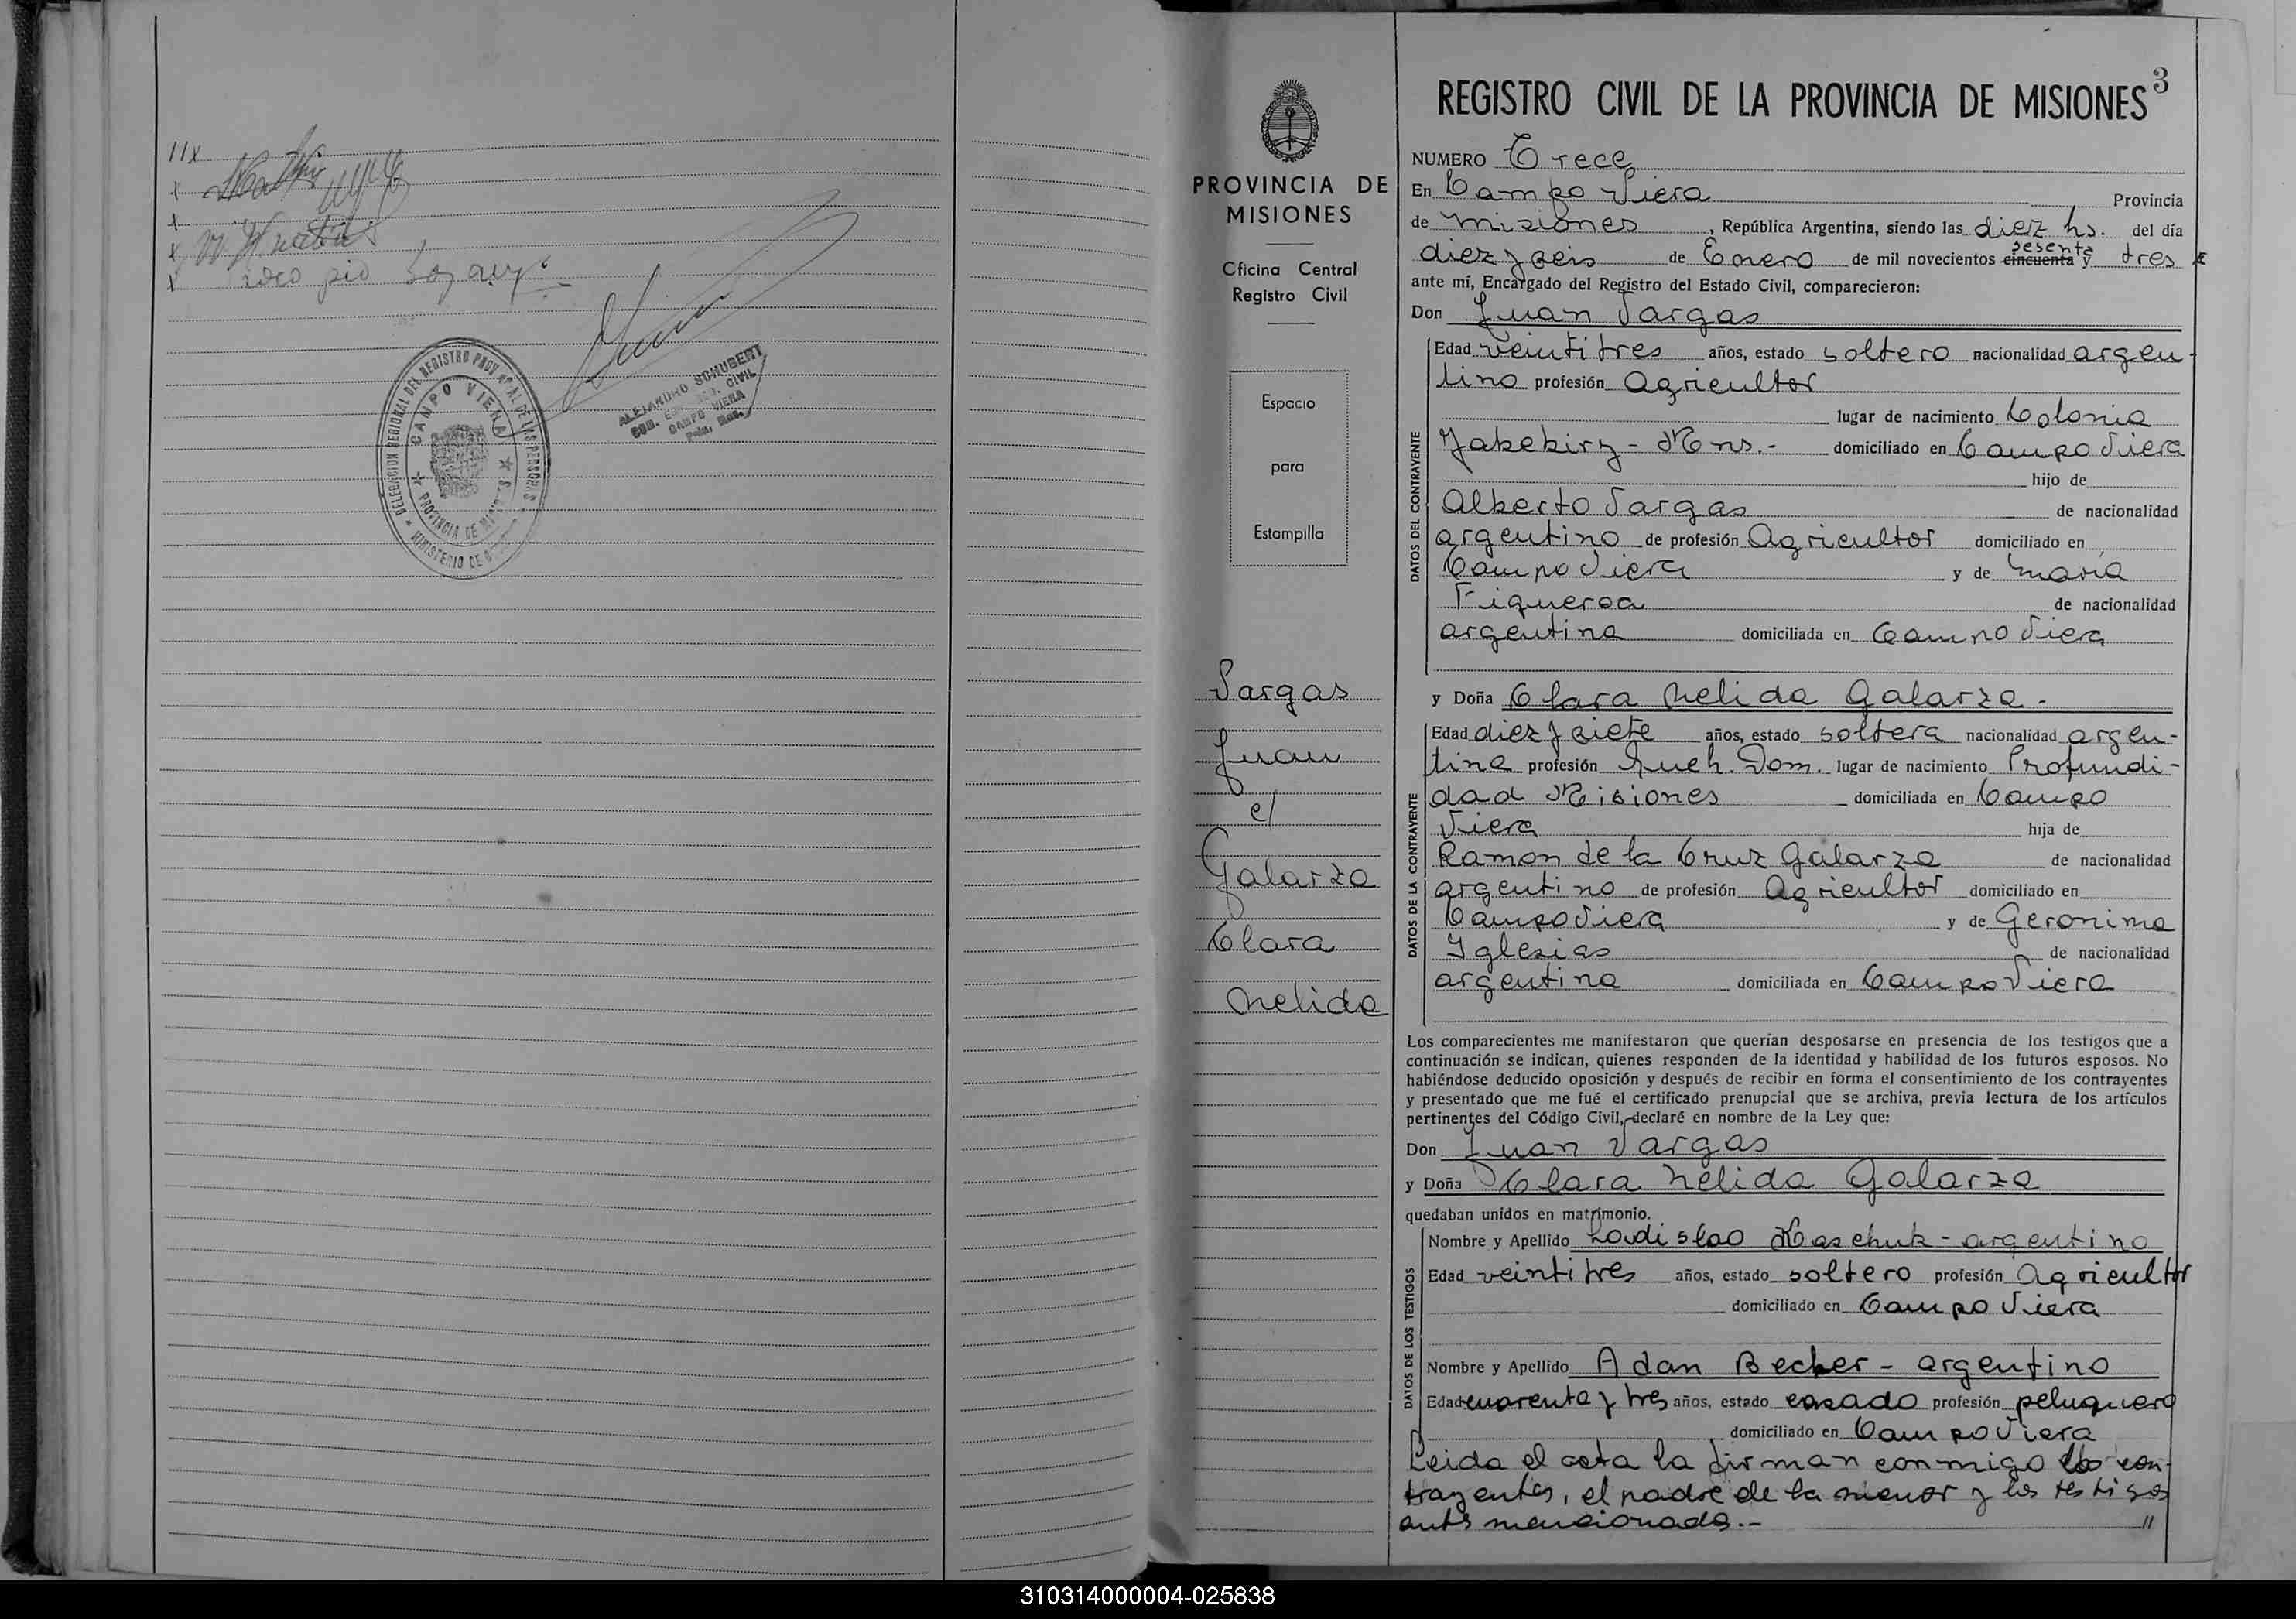 11x
x
x
x
x roco pio
DELEGACION REGIONAL DEL REGISTRO PROV. DE LAS PERSONAS
CAMPO VIERA
PROVINCIA DE
MINISTERIO DE
ALEJANDRO SCHUBERT
CIVIL
CAMPO VIERA
PROVINCIA DE
MISIONES
Oficina Central
Registro Civil
Espacio
para
Estampilla
Vargas
Juan
c/
Galarza
Clara
Nelida
3
REGISTRO CIVIL DE LA PROVINCIA DE MISIONES
NUMERO Trece
En Campo Viera Provincia
de Misiones, República Argentina, siendo las diez hs. del día
sesenta
diez y seis de Enero de mil novecientos cincuenta y tres
ante mí, Encargado del Registro del Estado Civil, comparecieron:
Don Juan Vargas
DATOS DEL CONTRAYENTE
Edad veintitres años, estado soltero nacionalidad argen-
tino profesión Agricultor
lugar de nacimiento Colonia
Yabebiry - Mns.- domiciliado en Campo Viera
hijo de
Alberto Vargas de nacionalidad
argentino de profesión Agricultor domiciliado en
Campo Viera y de Maria
Figueroa de nacionalidad
argentina domiciliada en Campo Viera
y Doña Clara Nelida Galarza.-
DATOS DE LA CONTRAYENTE
Edad diez y siete años, estado soltera nacionalidad argen-
tina profesión Queh. Dom. lugar de nacimiento Profundi-
dad Misiones domiciliada en Campo
Viera hija de
Ramon de la Cruz Galarza de nacionalidad
argentino de profesión Agricultor domiciliado en
Campo Viera y de Geronima
Iglesias de nacionalidad
argentina domiciliada en Campo Viera
Los comparecientes me manifestaron que querían desposarse en presencia de los testigos que a
continuación se indican, quienes responden de la identidad y habilidad de los futuros esposos. No
habiéndose deducido oposición y después de recibir en forma el consentimiento de los contrayentes
y presentado que me fué el certificado prenupcial que se archiva, previa lectura de los artículos
pertinentes del Código Civil, declaré en nombre de la Ley que:
Don Juan Vargas
y Doña Clara Nelida Galarza
quedaban unidos en matrimonio.
DATOS DE LOS TESTIGOS
Nombre y Apellido Ladislao Kaschuk - argentino
Edad veintitres años, estado soltero profesión Agricultor
domiciliado en Campo Viera
Nombre y Apellido Adan Becker - argentino
Edad cuarenta y tres años, estado casado profesión peluquero
domiciliado en Campo Viera
Leida el acta la firman conmigo los con-
trayentes, el padre de la menor y los testigos
antes mencionados.- //
310314000004-025838